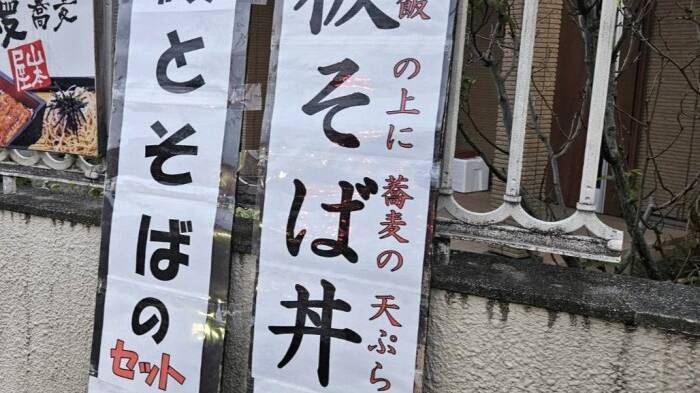 板そば丼
飯の上に 蕎麦の 天ぷら
とそばの
セット
蕎麦